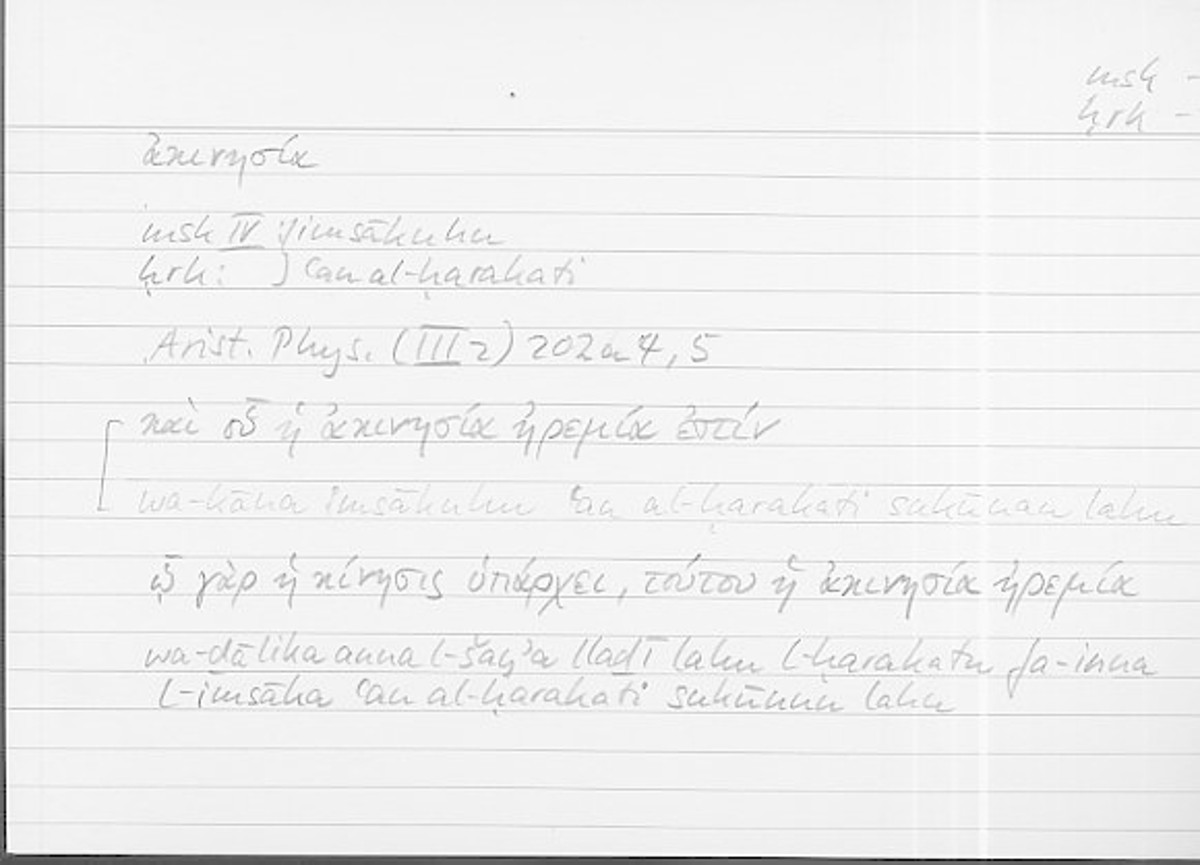 msk -
ḥrk -
ἀκινησία
msk IV } imsākuhu
ḥrk: } ʿan al-ḥarakati
Arist. Phys. (III 2) 202a 4, 5
καὶ οὗ ἡ ἀκινησία ἠρεμία ἐστίν
wa-kāna imsākuhu ʿan al-ḥarakati sukūnan lahu
ᾧ γὰρ ἡ κίνησις ὑπάρχει, τούτου ἡ ἀκινησία ἠρεμία
wa-ḏālika anna l-šayʾa lladī lahu l-ḥarakatu fa-inna
l-imsāka ʿan al-ḥarakati sukūnun lahu